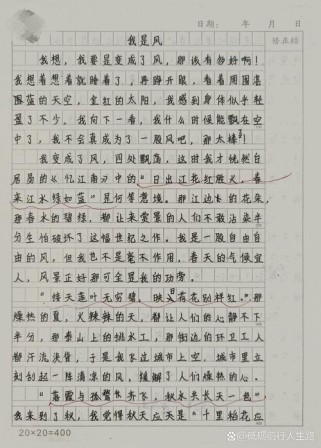 日期： 年 月 日
我是风 修正栏
我想，我要是变成了风，那该有多好啊！
我想着想着就睡着了，再睁开眼，看着周围湛
蓝的天空，金红的太阳，我感到身体似乎轻
盈了不少。我向下一看，我什么时候能飘在空
中了，我不会真成为了一股风吧，那太棒了！
我变成了风，四处飘荡，这时我才恍然白
居易的《忆江南》中的“日出江花红胜火，春
来江水绿如蓝”是何等意境。那江边上的花朵，
那春水的碧绿，都让来赏景的人们不敢沾染半
分生怕破坏了这幅世纪之作。我是一股自由自
由的风，但我也不是毫不作用，春天的气候宜
人，风景正好那可全是我的功劳。
“接天莲叶无穷碧，映日荷花别样红。”那
燥热的夏，火辣辣的天，都让人们的心静不下
半分，那泰山上的挑水工，那街边的环卫工人
都汗流浃背，于是我家这城市上空，城市里立
刻刮起一阵清凉的风，缓解了人们燥热的心。
“落霞与孤鹜齐飞，秋水共长天一色”
我来到了秋，我觉得秋天应天是“十里稻花应
20×20=400
@低调的行人生路